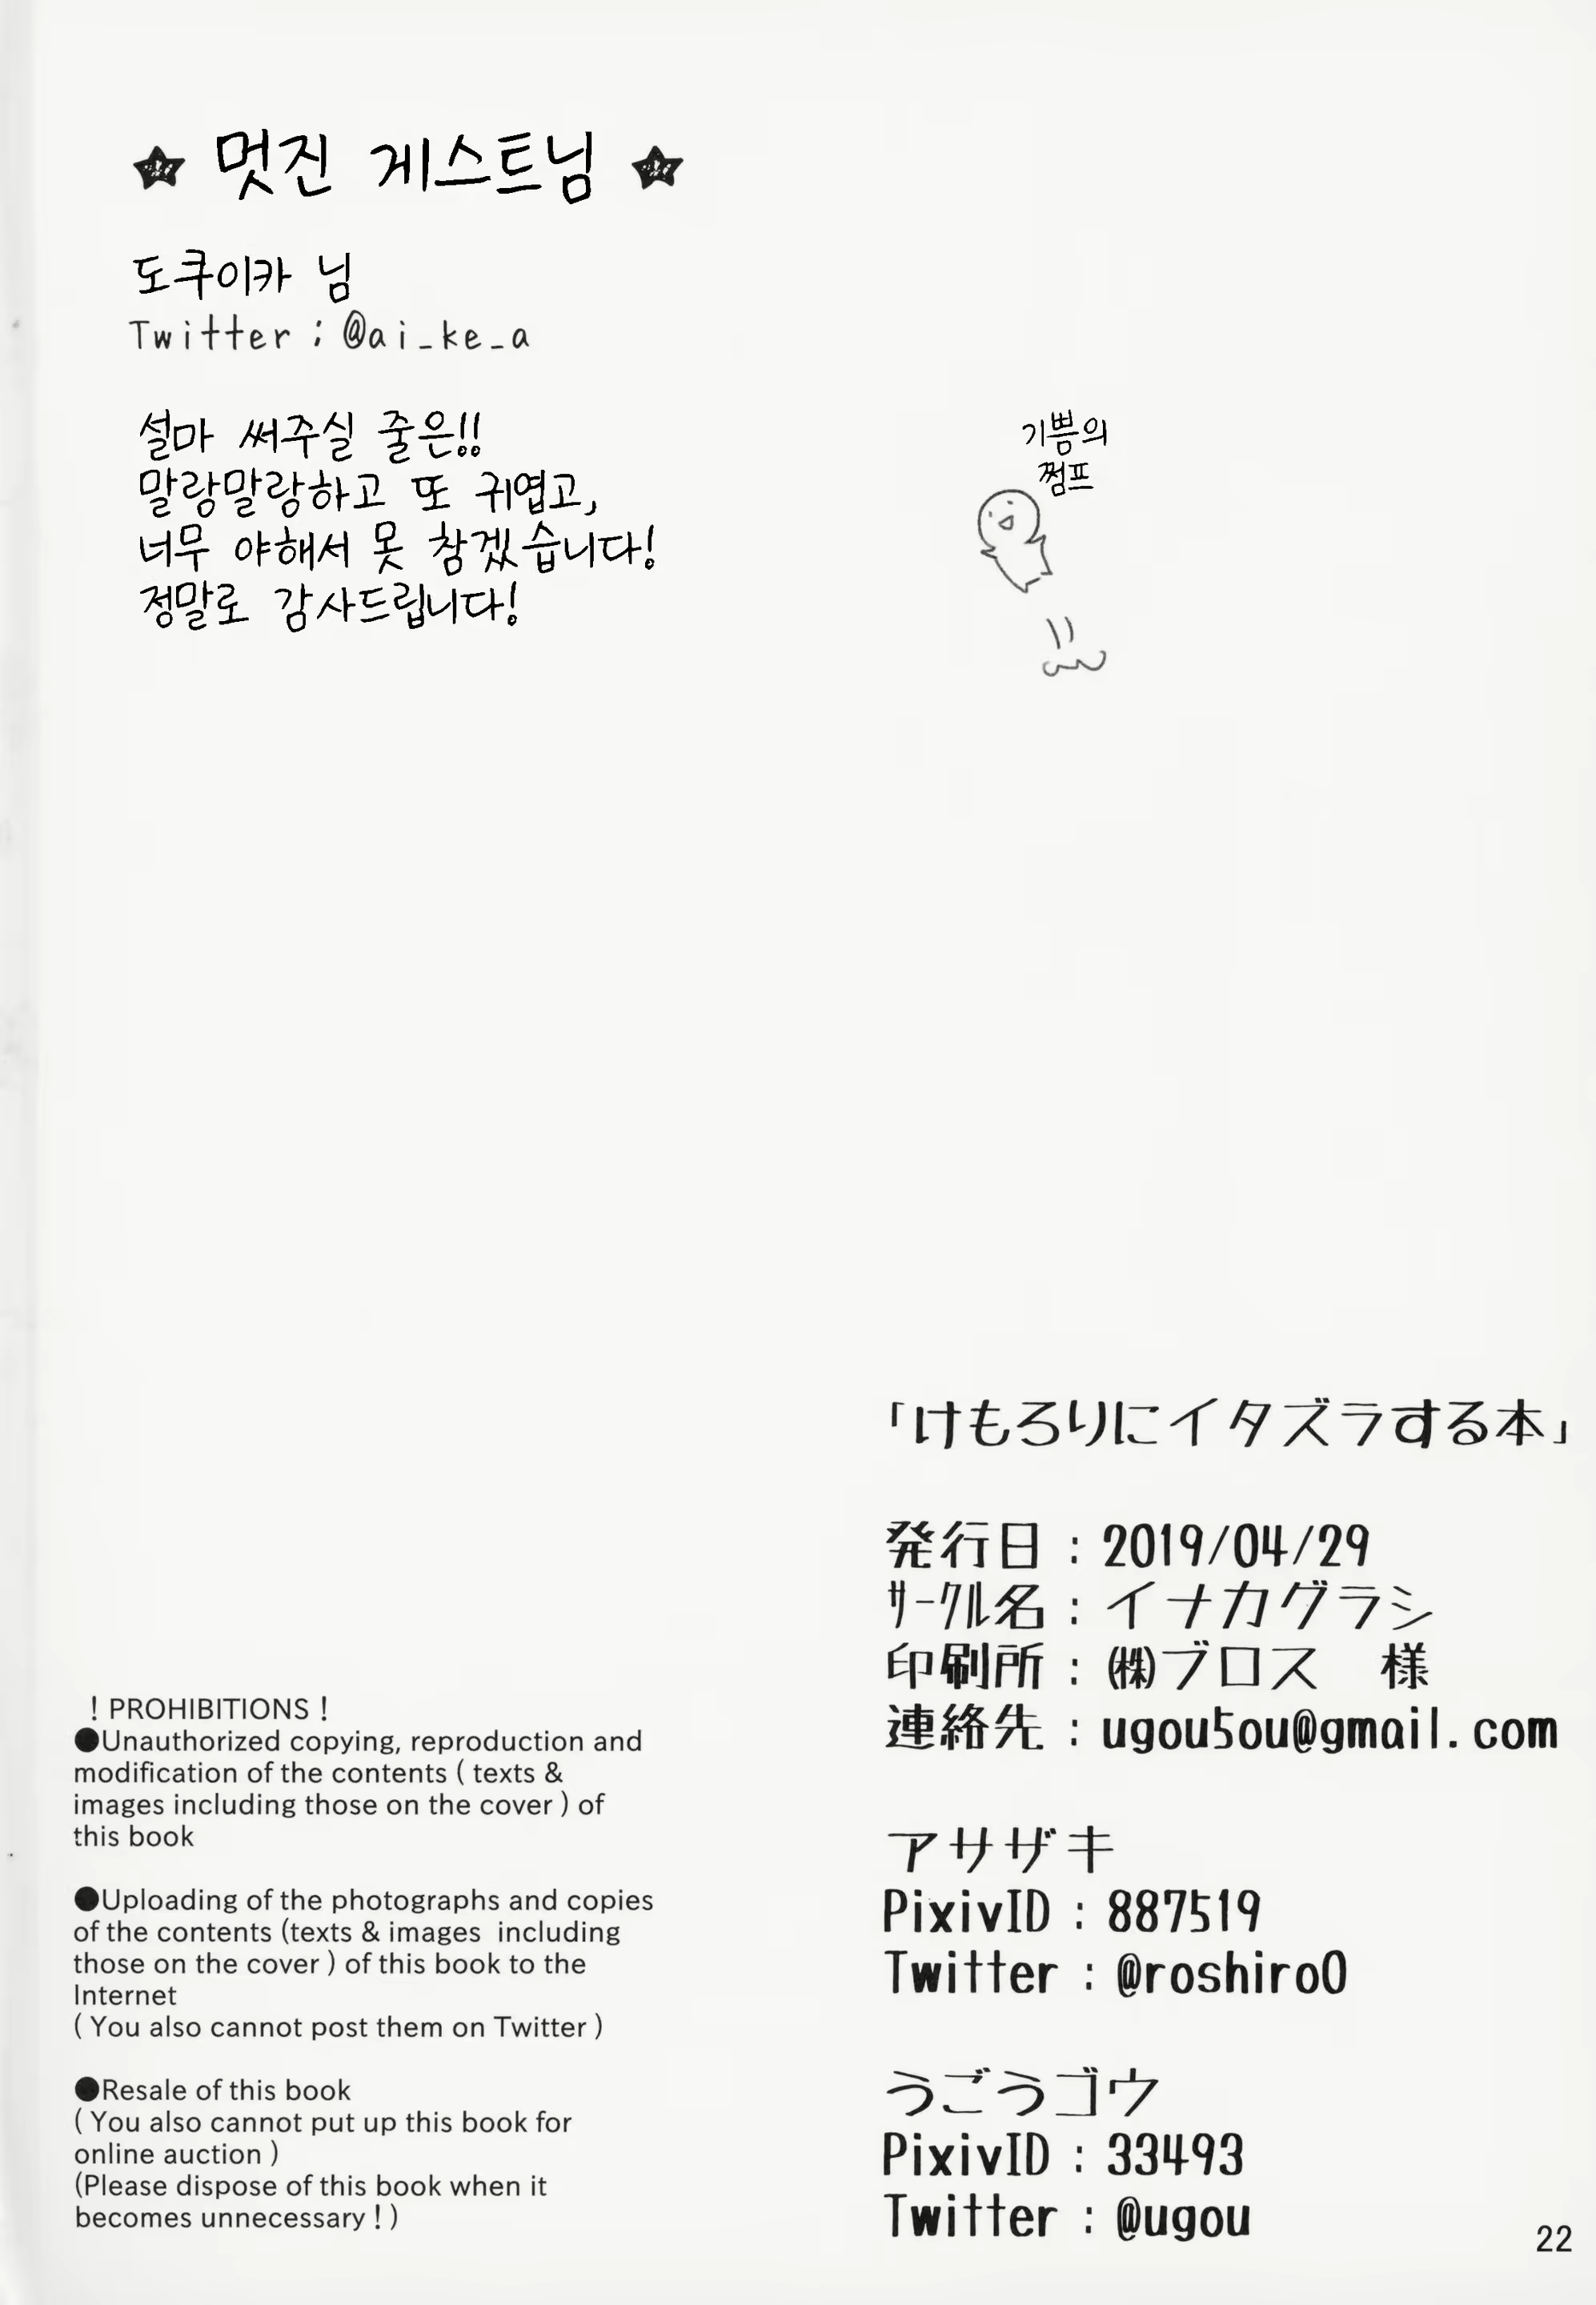 ★ 멋진 게스트님 ★
도쿠이카 님
Twitter ; @ai_ke_a
설마 써주실 줄은!!
말랑말랑하고 또 귀엽고,
너무 야해서 못 참겠습니다!
정말로 감사드립니다!
기쁨의
쩜프
「けもろりにイタズラする本」
発行日：2019/04/29
ｻｰｸﾙ名：イナカグラシ
印刷所：㈱ブロス　様
連絡先：ugou5ou@gmail.com
アサザキ
PixivID：887519
Twitter：@roshiro0
うごうゴウ
PixivID：33493
Twitter：@ugou
！PROHIBITIONS！
●Unauthorized copying, reproduction and
modification of the contents ( texts &
images including those on the cover ) of
this book
●Uploading of the photographs and copies
of the contents (texts & images including
those on the cover ) of this book to the
Internet
( You also cannot post them on Twitter )
●Resale of this book
( You also cannot put up this book for
online auction )
(Please dispose of this book when it
becomes unnecessary ! )
22